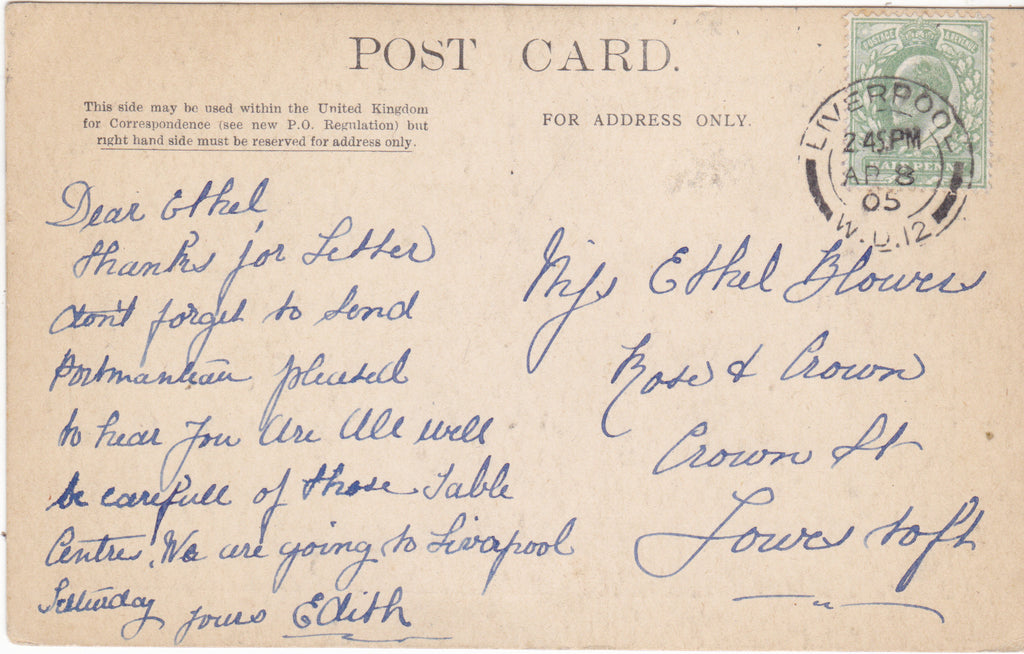 POST CARD.
This side may be used within the United Kingdom
for Correspondence (see new P.O. Regulation) but
right hand side must be reserved for address only.
FOR ADDRESS ONLY.
POSTAGE & REVENUE
LIVERPOOL
2.45 PM
AP 8
05
W.D.12
Dear Ethel,
thanks for Letter
don't forget to Send
Portmantau pleased
to hear you are all well
be carefull of those Table
Centres, We are going to Liverpool
Saturday yours Edith
Miss Ethel Blowers
Rose & Crown
Crown St
Lowestoft